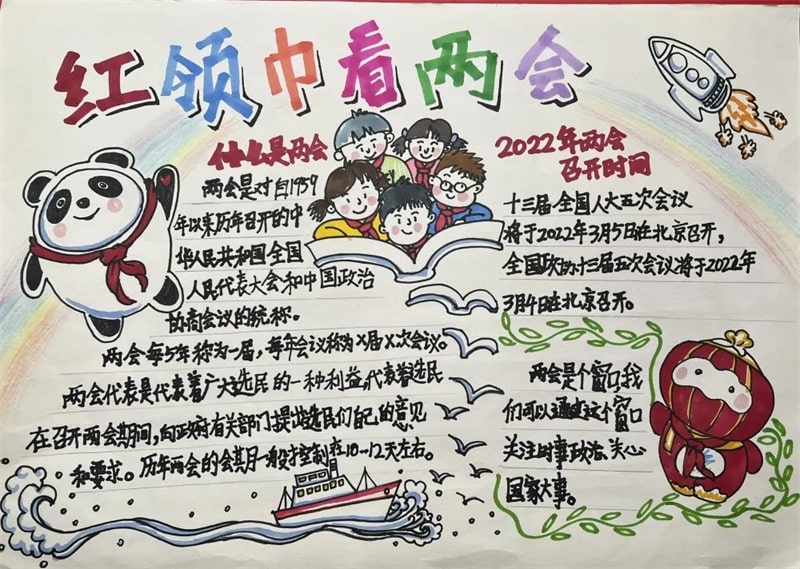 红领巾看两会
什么是两会
两会是对自1959
年以来历年召开的中
华人民共和国全国
人民代表大会和中国政治
协商会议的统称。
两会每5年称为一届，每年会议称为X届X次会议。
两会代表是代表着广大选民的一种利益，代表着选民
在召开两会期间，向政府有关部门提出选民们自己的意见
和要求。历年两会的会期一般才控制在10-12天左右。
2022年两会
召开时间
十三届全国人大五次会议
将于2022年3月5日在北京召开，
全国政协十三届五次会议将于2022年
3月4日在北京召开。
两会是个窗口，我
们可以通过这个窗口
关注时事政治、关心
国家大事。